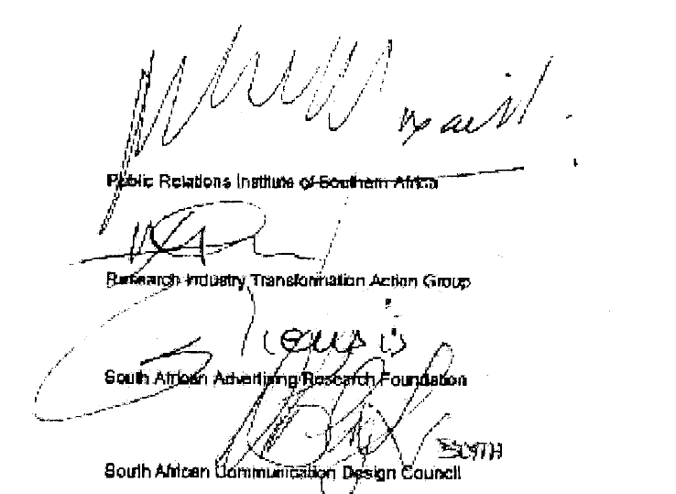 Public Relations Institute of Southern Africa
Research Industry Transformation Action Group
South African Advertising Research Foundation
BLYTH
South African Communication Design Council